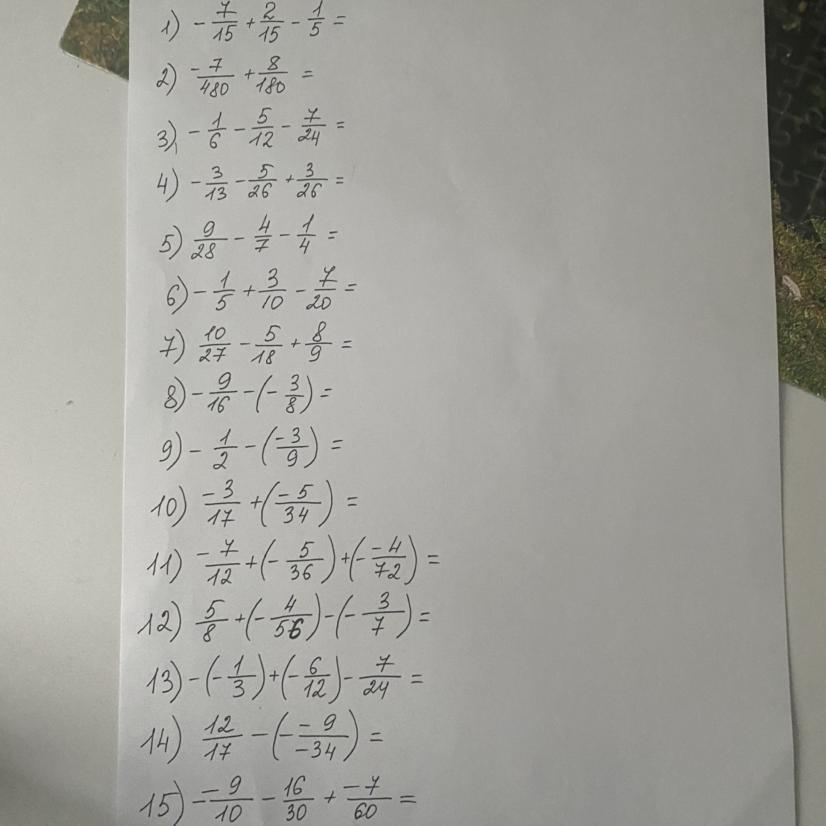 1) -7/15 + 2/15 - 1/5 =
2) -7/480 + 8/180 =
3) -1/6 - 5/12 - 7/24 =
4) -3/13 - 5/26 + 3/26 =
5) 9/28 - 4/7 - 1/4 =
6) -1/5 + 3/10 - 7/20 =
7) 10/27 - 5/18 + 8/9 =
8) -9/16 - (-3/8) =
9) -1/2 - (-3/9) =
10) -3/17 + (-5/34) =
11) -7/12 + (-5/36) + (- -4/72) =
12) 5/8 + (-4/56) - (-3/7) =
13) -(-1/3) + (-6/12) - 7/24 =
14) 12/17 - (- -9/-34) =
15) - -9/10 - 16/30 + -7/60 =